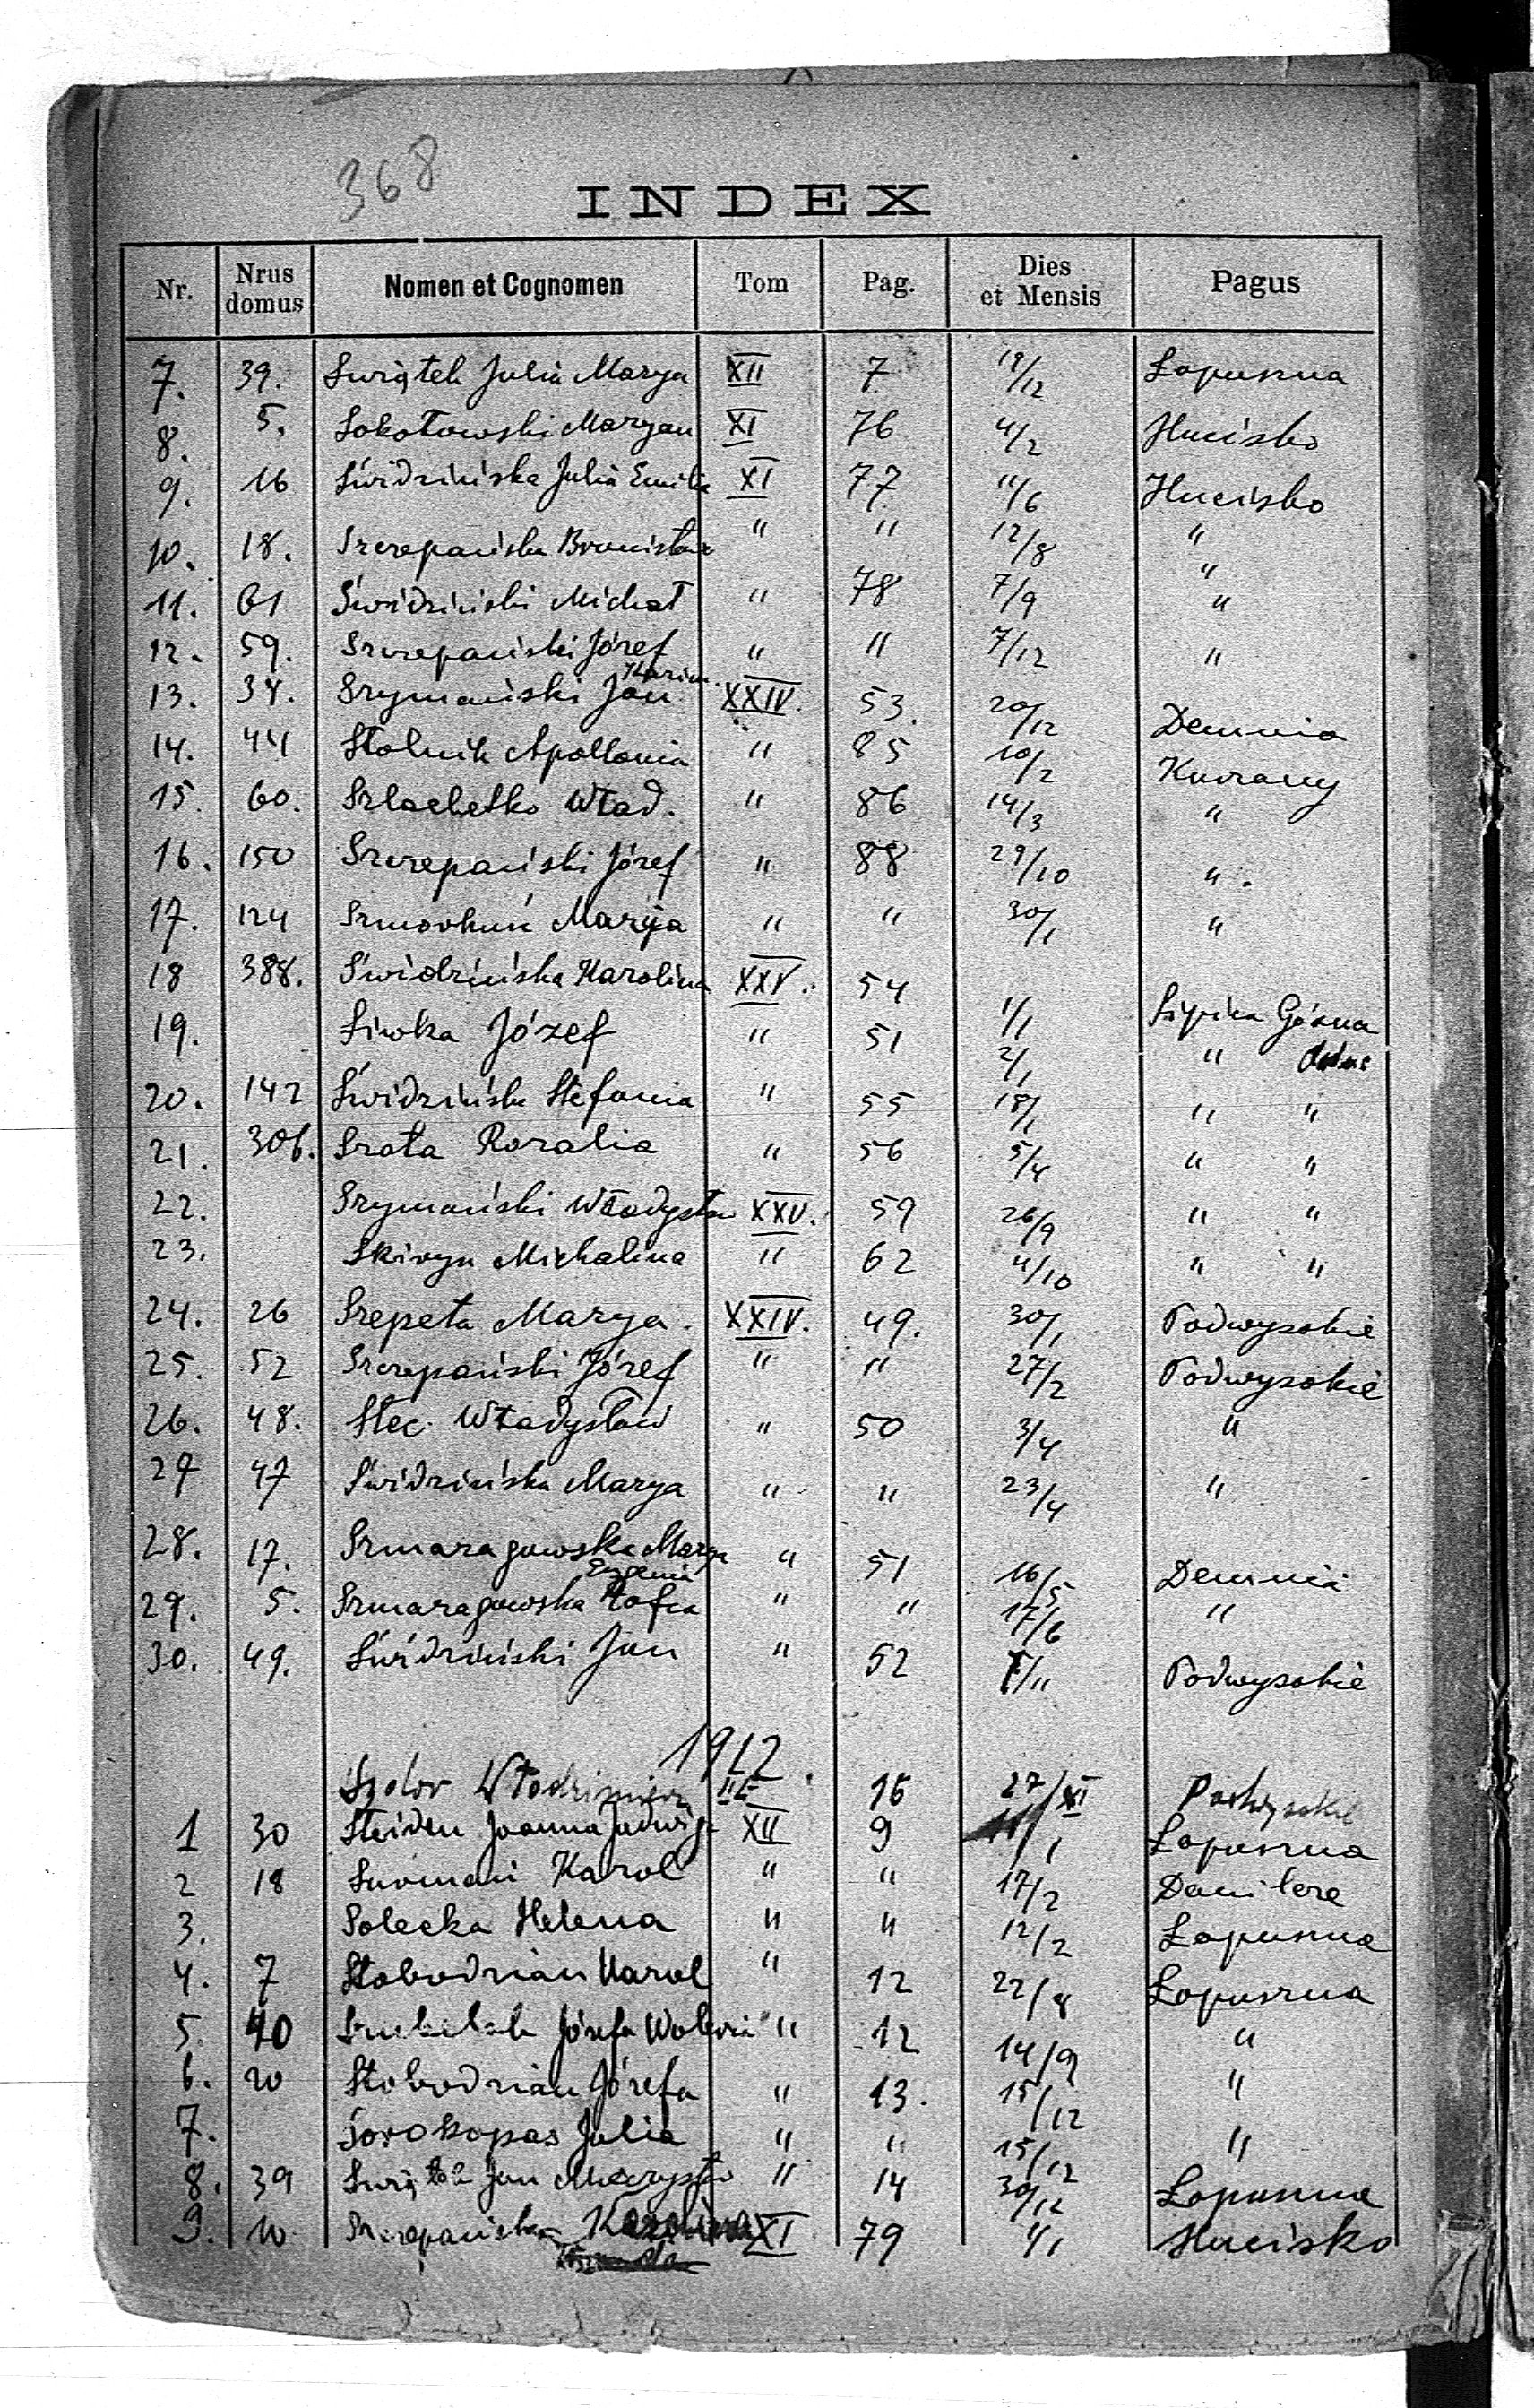 368
INDEX
Nr. Nrus domus Nomen et Cognomen Tom Pag. Dies et Mensis Pagus
7. 39. Swiątek Julia Marya XII 7 19/12 Łopuszna
8. 5. Sokołowski Maryan XI 76 4/2 Hucisko
9. 16 Świdzińska Julia Emilia XI 77 11/6 Hucisko
10. 18. Szczepańska Bronisława " " 12/8 "
"
11. 61 Świdziński Michał " 78 7/9 "
12. 59. Szczepański Józef " " 7/12 "
13. 34. Szymański Jan XXIV. 53. 20/12 Demnia
14. 44 Stolnik Apollonia " 85 10/2 Kurzany
15. 60. Szlachetko Wład. " 86 14/3 "
16. 150 Szczepański Józef " 88 29/10 "
17. 124 Szmorhun Marya " " 30/1 "
18 388. Świdzińska Karolina XXV. 54 1/1 Lipica Górna
19. Siwka Józef " 51 2/1 "
20. 142 Świdzińska Stefania " 55 18/1 " "
21. 306. Szota Rozalia " 56 5/4 " "
22. Szymański Władysław XXV. 59 26/9 " "
23. Skivyn Michalina " 62 4/10 " "
24. 26 Szepeta Marya. XXIV. 49. 30/1 Podwysokie
25. 52 Szczepański Józef " " 27/2 Podwysokie
26. 48. Stec Władysław " 50 3/4 "
27 47 Świdzińska Marya " " 23/4 "
28. 17. Szmaragowska Marya " 51 16/5 Demnia
Eugenia
29. 5. Szmaragowska Zofia " " 17/6 "
30. 49. Świdziński Jan " 52 /11 Podwysokie
1912.
Szolor Włodzimierz III 16 27/XI Podwysokie
1 30 Joanna Jadwiga XII 9 11/1 Łopuszna
2 18 Karol " " 17/2
3. Solecka Helena " " 12/2 Łopuszna
4. 7 Słobodzian Karol " 12 22/8 Łopuszna
5. 40 Józefa " 12 14/9 "
6. 20 Słobodzian Józefa " 13. 15/12 "
7. Sorokopas Julia " " 15/12 "
8. 39 Swiątek Jan Mieczysław " 14 30/12 Łopuszna
9. 10 Szczepańska Karolina XI 79 4/1 Hucisko